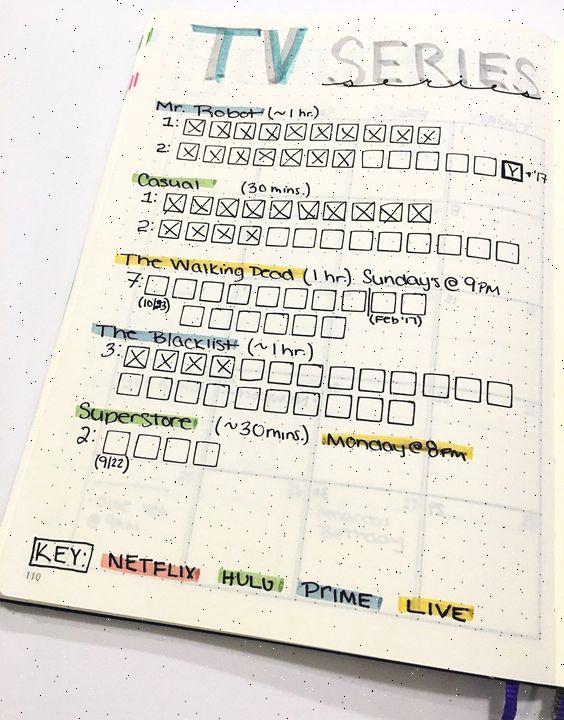 TV SERIES
series
Mr. Robot (~1 hr.)
1:
2: Y →'17
Casual (30 mins.)
1:
2:
The Walking Dead (1 hr) Sundays @ 9PM
7:
(10/23) (Feb '17)
The Blacklist (~1hr.)
3:
Superstore (~30mins.) Monday @ 8PM
2:
(9/22)
KEY: NETFLIX HULU PRIME LIVE
110